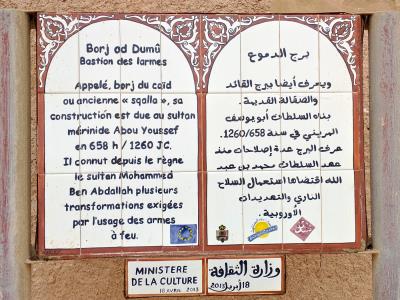 Borj ad Dumû
Bastion des larmes
Appelé, borj du caïd
ou ancienne « sqalla », sa
construction est due au sultan
mérinide Abou Youssef
en 658 h / 1260 JC.
Il connut depuis le règne
le sultan Mohammed
Ben Abdallah plusieurs
transformations exigées
par l'usage des armes
à feu.
برج الدموع
ويعرف أيضا ببرج القائد
والصقالة القديمة.
بناه السلطان أبو يوسف
المريني في سنة 1260/658.
عرف البرج عدة إصلاحات منذ
عهد السلطان محمد بن عبد
الله اقتضاها استعمال السلاح
الناري والتهديدات
الأوروبية.
MINISTERE
DE LA CULTURE
18 AVRIL 2013
وزارة الثقافة
18 أبريل 2013